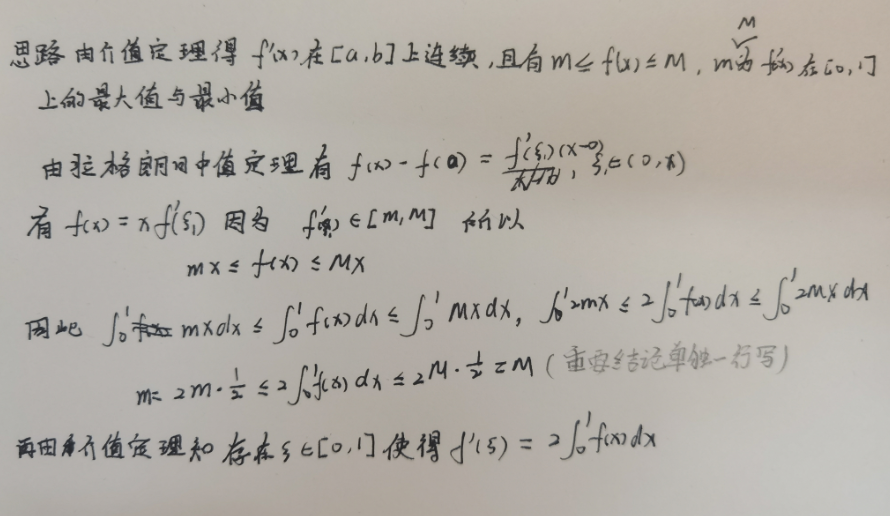 思路 由介值定理得 f'(x)在[a,b]上连续,且有 m≤f(x)≤M, m M为f'(x)在[0,1]
上的最大值与最小值
由拉格朗日中值定理有 f(x)-f(0)=f'(ξ₁)(x-0), ξ₁∈(0,x)
有 f(x)=xf'(ξ₁) 因为 f'(x)∈[m,M] 所以
mx≤f(x)≤Mx
因此 ∫₀¹mxdx≤∫₀¹f(x)dx≤∫₀¹Mxdx, ∫₀¹2mx≤2∫₀¹f(x)dx≤∫₀¹2Mxdx
m=2m·1/2≤2∫₀¹f(x)dx≤2M·1/2=M (重要结论单独一行写)
再由介值定理知 存在ξ∈[0,1]使得f'(ξ)=2∫₀¹f(x)dx